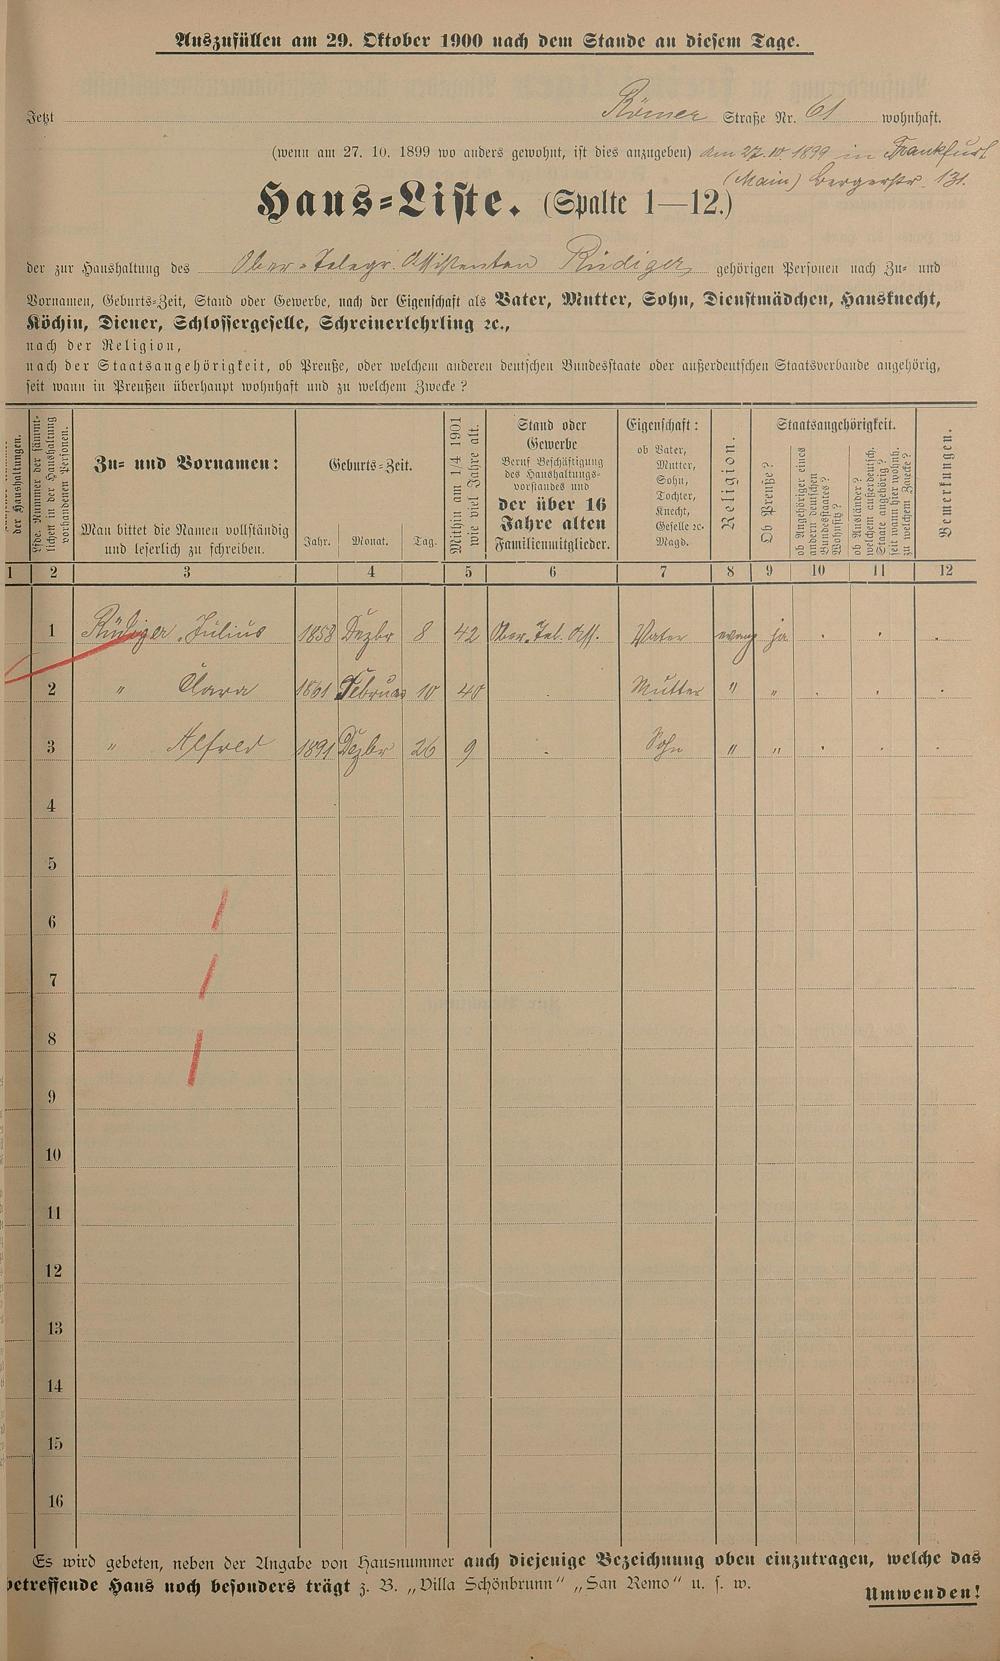 Auszufüllen am 29. Oktober 1900 nach dem Stande an diesem Tage.
Jetzt Römer Straße Nr. 61 wohnhaft.
(wenn am 27. 10. 1899 wo anders gewohnt, ist dies anzugeben) am 27. 10. 1899 in Frankfurt
(Main) Bergerstr. 131.
Haus-Liste. (Spalte 1—12.)
der zur Haushaltung des Ober-Telegr. Assistenten Rüdiger gehörigen Personen nach Zu- und
Vornamen, Geburts-Zeit, Stand oder Gewerbe, nach der Eigenschaft als Vater, Mutter, Sohn, Dienstmädchen, Hausknecht,
Köchin, Diener, Schlossergeselle, Schreinerlehrling ec.,
nach der Religion,
nach der Staatsangehörigkeit, ob Preuße, oder welchem anderen deutschen Bundesstaate oder außerdeutschen Staatsverbande angehörig,
seit wann in Preußen überhaupt wohnhaft und zu welchem Zwecke?
der Haushaltungen.
Lfde. Nummer der sämmt-
lichen in der Haushaltung
vorhandenen Personen.
Zu- und Vornamen:
Man bittet die Namen vollständig
und leserlich zu schreiben.
Geburts-Zeit.
Jahr. Monat. Tag.
Mithin am 1/4 1901
wie viel Jahre alt.
Stand oder
Gewerbe
Beruf Beschäftigung
des Haushaltungs-
vorstandes und
der über 16
Jahre alten
Familienmitglieder.
Eigenschaft:
ob Vater,
Mutter,
Sohn,
Tochter,
Knecht,
Geselle ec.
Magd.
Religion.
Staatsangehörigkeit.
Ob Preuße?
ob Angehöriger eines
andern deutschen
Bundesstaates?
Wohnsitz?
ob Ausländer?
welchem außerdeutsch.
Staate angehörig?
seit wann hier wohnh.
zu welchem Zwecke?
Bemerkungen.
1 2 3 4 5 6 7 8 9 10 11 12
1 Rüdiger, Julius 1858 Dezbr 8 42 Ober. Tel. Ass. Vater evang ja . . .
2 " Clara 1861 Februar 10 40 . Mutter " " . . .
3 " Alfred 1891 Dezbr 26 9 . Sohn " " . . .
4
5
6
7
8
9
10
11
12
13
14
15
16
Es wird gebeten, neben der Angabe von Hausnummer auch diejenige Bezeichnung oben einzutragen, welche das
betreffende Haus noch besonders trägt z. B. „Villa Schönbrunn“ „San Remo“ u. s. w.
Umwenden!